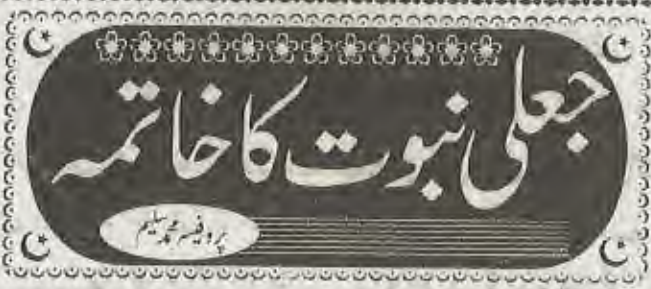 جعلی نبوت کا خاتمہ
پروفیسر محمد سلیم